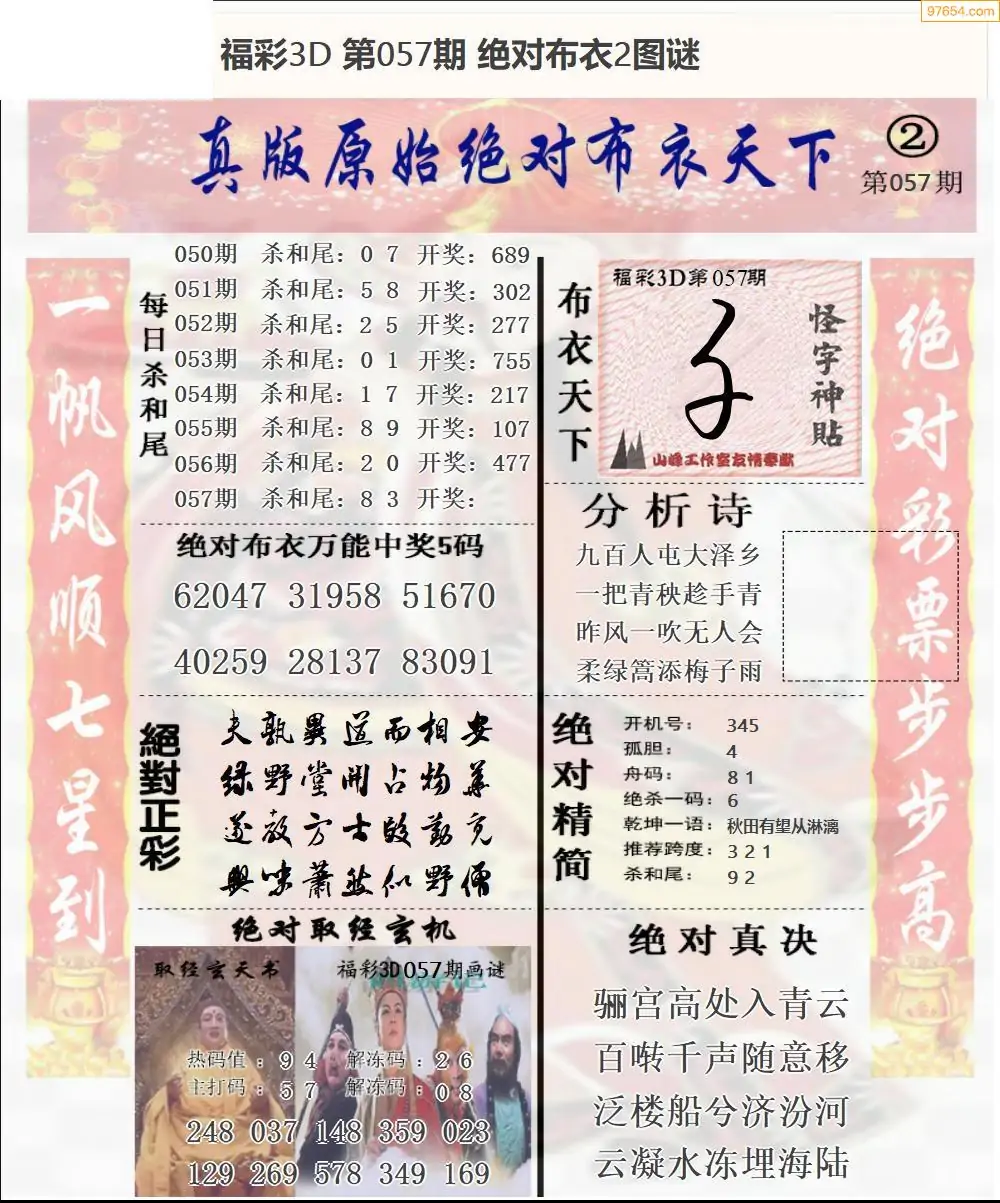 97654.com
福彩3D 第057期 绝对布衣2图谜
真版原始绝对布衣天下
②
第057期
一帆风顺七星到
每日杀和尾
050期 杀和尾：0 7 开奖：689
051期 杀和尾：5 8 开奖：302
052期 杀和尾：2 5 开奖：277
053期 杀和尾：0 1 开奖：755
054期 杀和尾：1 7 开奖：217
055期 杀和尾：8 9 开奖：107
056期 杀和尾：2 0 开奖：477
057期 杀和尾：8 3 开奖：
绝对布衣万能中奖5码
62047 31958 51670
40259 28137 83091
絕對正彩
夫孰異道而相安
绿野堂開占物華
遂教方士殷勤
興味蕭然似野僧
绝对取经玄机
取经玄天书
福彩3D057期画谜
热码值：9 4 解冻码：2 6
主打码：5 7 解冻码：0 8
248 037 148 359 023
129 269 578 349 169
布衣天下
福彩3D第057期
子
怪字神貼
山峰工作室友情奉献
分析诗
九百人屯大泽乡
一把青秧趁手青
昨风一吹无人会
柔绿篙添梅子雨
绝对精简
开机号：345
孤胆：4
舟码：8 1
绝杀一码：6
乾坤一语：秋田有望从淋漓
推荐跨度：3 2 1
杀和尾：9 2
绝对真决
骊宫高处入青云
百啭千声随意移
泛楼船兮济汾河
云凝水冻埋海陆
绝对彩票步步高